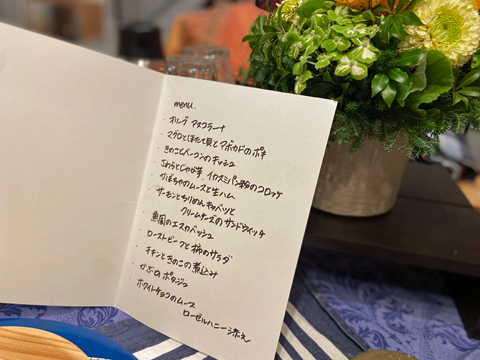 menu.
・オリーブ アスコラーナ
・マグロとほたて貝とアボカドのポキ
・きのことベーコンのキッシュ
・さわらとじゃが芋、イカスミパン粉のコロッケ
・かぼちゃのムースと生ハム
・サーモンとちりめんキャベツと
クリームチーズのサンドウィッチ
・魚のエスカベッシュ
・ローストビーフと柿のサラダ
・チキンときのこの煮込み
・かぶのポタージュ
・ホワイトチョコのムース
ローゼルハニー添え